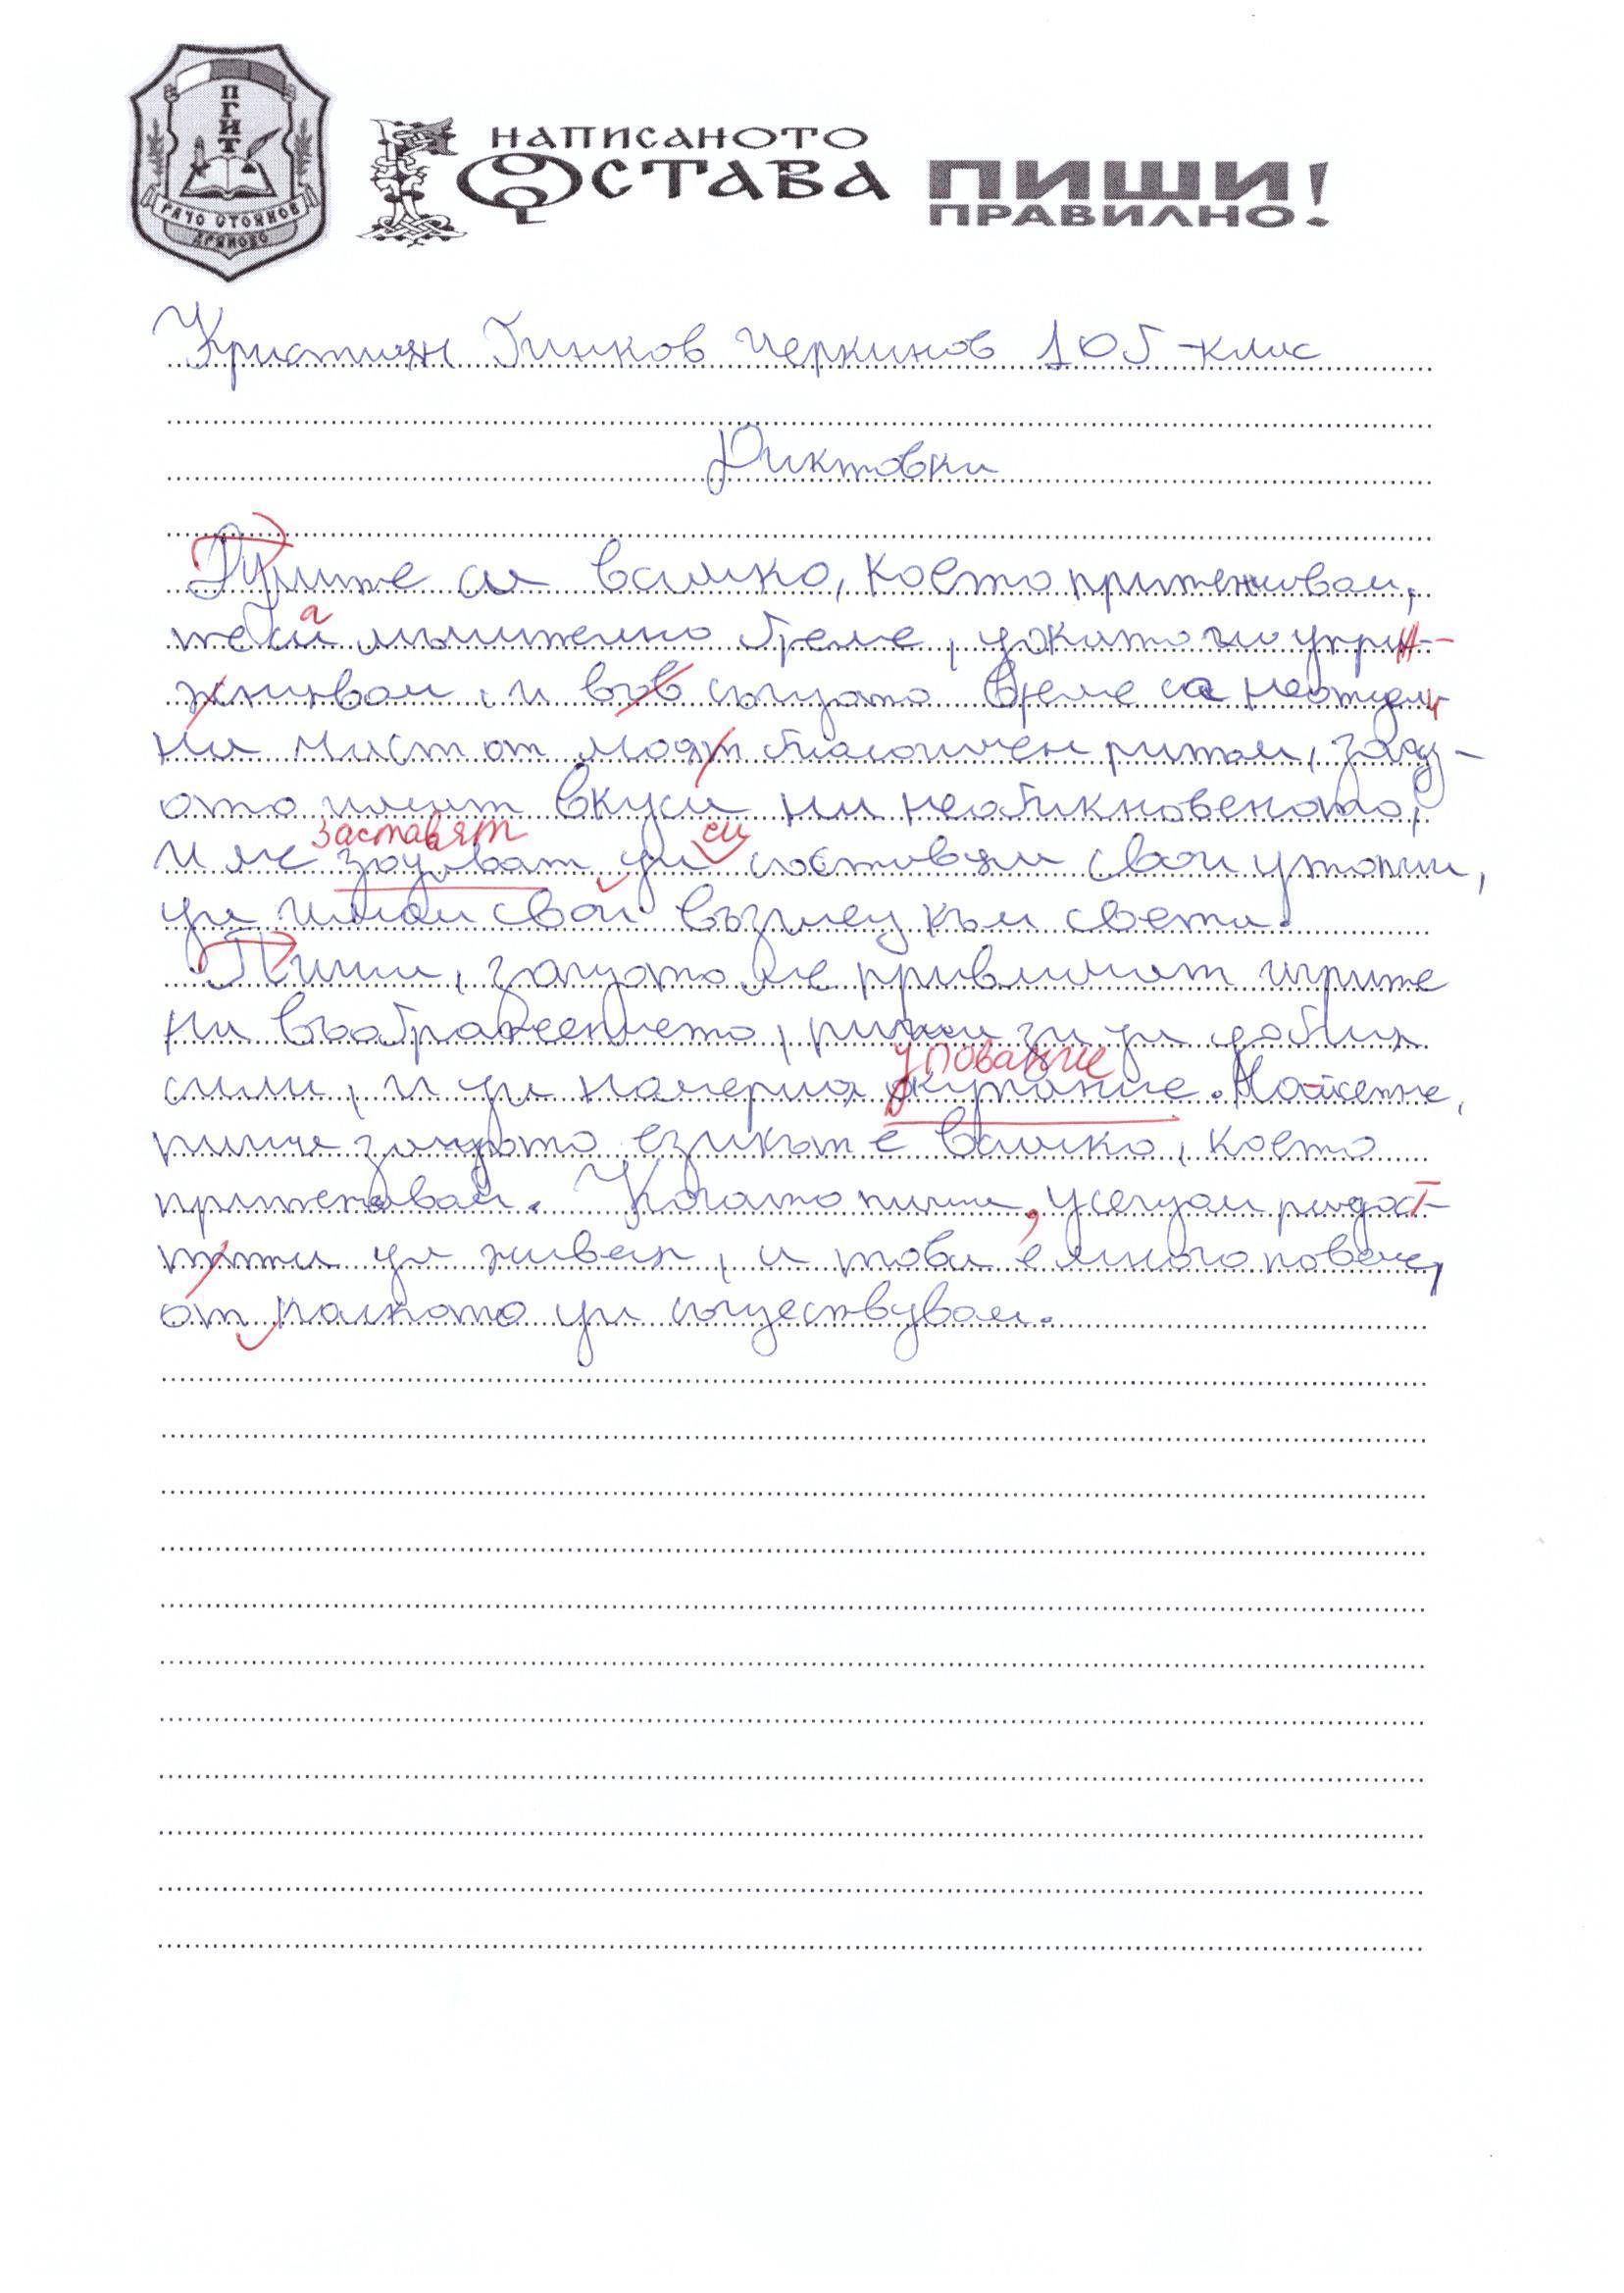 ПГИТ
РАЧО СТОЯНОВ
ДРЯНОВО
НАПИСАНОТО
ОСТАВА
ПИШИ
ПРАВИЛНО!
Кристиян Гинков Черкинов 10 Б -клас
Диктовка
Думите са всичко, което притежавам,
те са мъчително бреме, докато го упраж-
жнявам, и във същото време са неотдел
на част от моят биологичен ритъм, защ-
ото имат вкуса на необикновеното,
и ме задават да съставям свои утопии,
заставят си
да имам свой възглед към света.
Пиша, защото ме привличат игрите
на въображението, пиша за да добия
сили, и да намеря окупание. Може те,
упование
пиша защото езикът е всичко, което
притежавам. Когато пиша, усещам радост-
тта да живея, и това е много повече,
от колкото да съществувам.